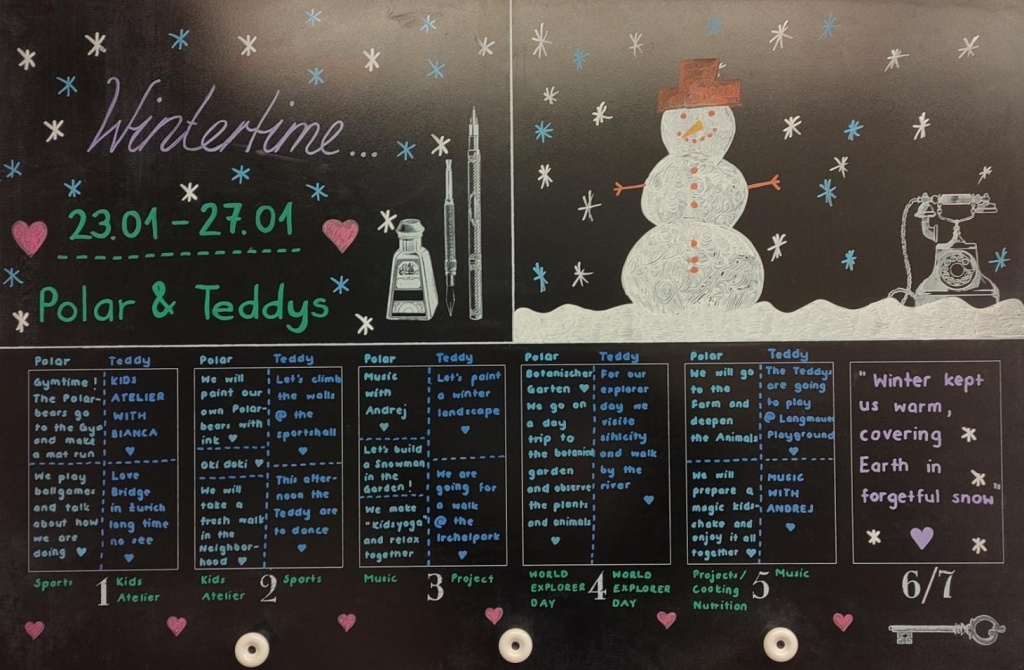 Wintertime...
23.01 - 27.01
Polar & Teddys
Polar
Gymtime!
The Polar-
bears go
to the Gym
and make
a mat run
We play
ballgames
and talk
about how
we are
doing
Teddy
KIDS
ATELIER
WITH
BIANCA
Love
Bridge
in Zurich
long time
no see
Sports
1
Kids
Atelier
Polar
We will
paint our
own Polar-
bears with
ink
Oki doki
We will
take a
fresh walk
in the
Neighbor-
hood
Teddy
Let's climb
the walls
@ the
sportshall
This after-
noon the
Teddy are
to dance
Kids
Atelier
2
Sports
Polar
Music
with
Andrej
Let's build
a Snowman
in the
Garden!
We make
"Kidsyoga"
and relax
together
Teddy
Let's paint
a winter
landscape
We are
going for
a walk
@ the
Irchelpark
Music
3
Project
Polar
Botanischer
Garten
We go on
a day
trip to
the botanical
garden
and observe
the plants
and animals
Teddy
For our
explorer
day we
visite
sihlcity
and walk
by the
river
WORLD
EXPLORER
DAY
4
WORLD
EXPLORER
DAY
Polar
We will go
to the
Farm and
deepen
the Animals
We will
prepare a
magic kids-
shake and
enjoy it all
together
Teddy
The Teddys
are going
to play
@ Longmauer
Playground
MUSIC
WITH
ANDREJ
Projects/
Cooking
Nutrition
5
Music
"Winter kept
us warm,
covering
Earth in
forgetful snow"
6/7